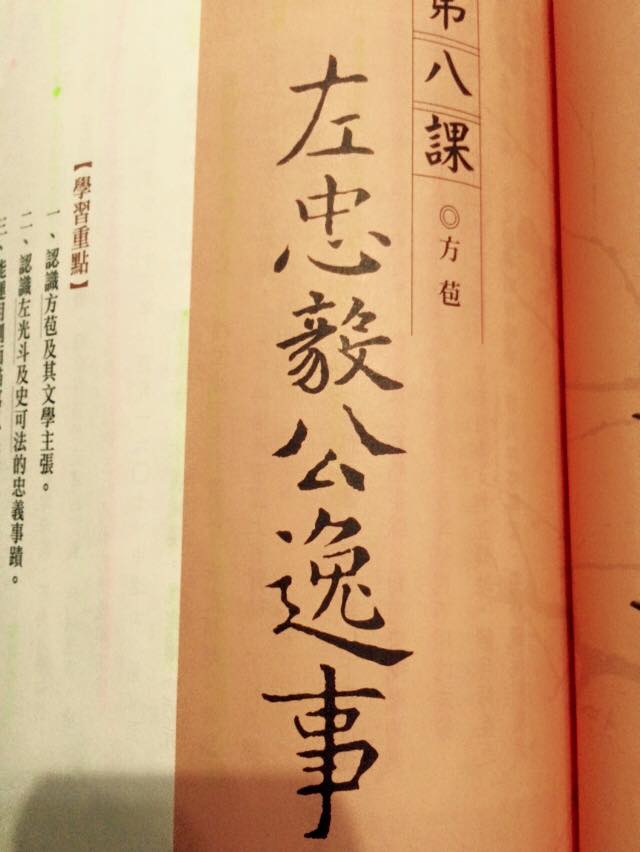 第八課
◎方苞
左忠毅公逸事
【學習重點】
一、認識方苞及其文學主張。
二、認識左光斗及史可法的忠義事蹟。
三、能運用側面描寫